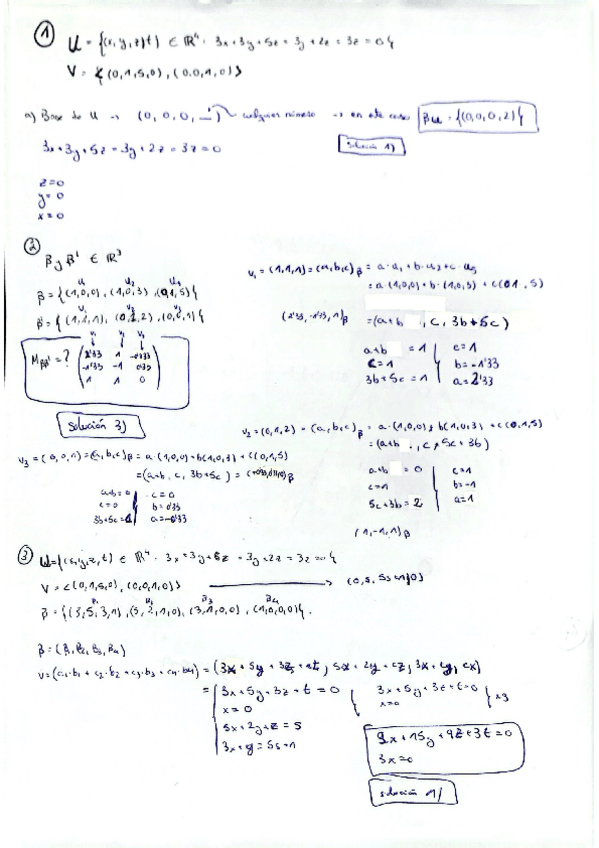 1
U = {(x, y, z, t) ∈ ℝ⁴ · 3x+3y+5z = 3y+2z = 3z = 0}
V = <(0,1,5,0), (0,0,1,0)>
a) Base de U → (0, 0, 0, _) cualquier número → en este caso βu = {(0,0,0,2)}
3x+3y+5z = 3y+2z = 3z = 0
Solución 1)
z=0
y=0
x=0
2
β y β' ∈ ℝ³
β = {(1,0,0), (1,0,3), (0,1,5)}
u₁ u₂ u₃
β' = {(1,1,1), (0,1,2), (0,0,1)}
v₁ v₂ v₃
Mββ' = ?
2'33 1 -0'33
-1'33 -1 0'33
1 1 0
Solución 3)
v₁ = (1,1,1) = (a,b,c)β = a·u₁ + b·u₂ + c·u₃
= a·(1,0,0) + b·(1,0,3) + c(0,1,5)
(2'33, -1'33, 1)β = (a+b, c, 3b+5c)
a+b = 1
c = 1
3b+5c = 1
c = 1
b = -1'33
a = 2'33
v₂ = (0,1,2) = (a,b,c)β = a·(1,0,0) + b(1,0,3) + c(0,1,5)
= (a+b, c, 5c+3b)
a+b = 0
c=1
5c+3b = 2
c=1
b=-1
a=1
(1,-1,1)β
v₃ = (0,0,1) = (a,b,c)β = a·(1,0,0) + b(1,0,3) + c(0,1,5)
= (a+b, c, 3b+5c) = (-0'33, 0'33, 0)β
a+b = 0
c = 0
3b+5c = 1
c = 0
b = 0'33
a = -0'33
3
U = {(x,y,z,t) ∈ ℝ⁴ · 3x+3y+5z = 3y+2z = 3z = 0}
V = <(0,1,5,0), (0,0,1,0)> → (0, s, 5s+1, 0)
β = {(3,5,3,1), (5,2,1,0), (3,1,0,0), (1,0,0,0)}.
β₁ β₂ β₃ β₄
β = (β₁, β₂, β₃, β₄)
v = (c₁·b₁ + c₂·b₂ + c₃·b₃ + c₄·b₄) = (3x + 5y + 3z + t, 5x + 2y + z, 3x + y, x)
3x + 5y + 3z + t = 0
x = 0
5x + 2y + z = s
3x + y = 5s+1
3x + 5y + 3z + t = 0
x=0
x3
9x + 15y + 9z + 3t = 0
3x = 0
solución 1)